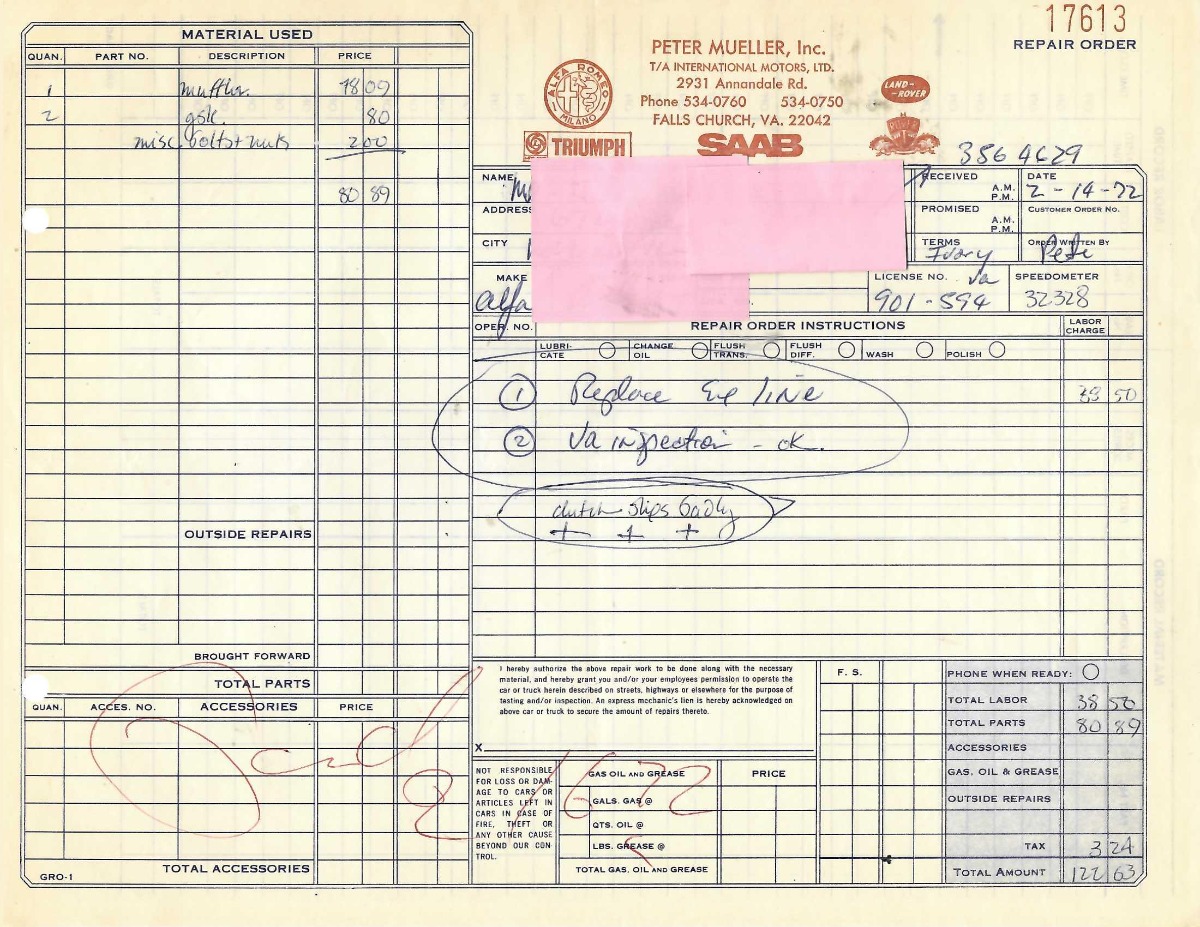 17613
REPAIR ORDER
PETER MUELLER, Inc.
T/A INTERNATIONAL MOTORS, LTD.
2931 Annandale Rd.
Phone 534-0760 534-0750
FALLS CHURCH, VA. 22042
ALFA ROMEO
MILANO
TRIUMPH
SAAB
LAND-ROVER
ROVER
356 4629
MATERIAL USED
QUAN. PART NO. DESCRIPTION PRICE
1 muffler 78 09
2 gsk. 80
misc. bolts + nuts 2 00
80 89
OUTSIDE REPAIRS
BROUGHT FORWARD
TOTAL PARTS
QUAN. ACCES. NO. ACCESSORIES PRICE
TOTAL ACCESSORIES
GRO-1
NAME
ADDRESS
CITY
MAKE
alfa
RECEIVED A.M. P.M.
DATE
2-14-72
PROMISED A.M. P.M.
CUSTOMER ORDER No.
TERMS
Ivory
ORDER WRITTEN BY
Pete
LICENSE NO. Va
901-594
SPEEDOMETER
32328
OPER. NO. REPAIR ORDER INSTRUCTIONS LABOR CHARGE
LUBRI-CATE CHANGE OIL FLUSH TRANS. FLUSH DIFF. WASH POLISH
1 Replace Exe line 38 50
2 Va inspection - ok.
clutch slips badly
+ + +
I hereby authorize the above repair work to be done along with the necessary
material, and hereby grant you and/or your employees permission to operate the
car or truck herein described on streets, highways or elsewhere for the purpose of
testing and/or inspection. An express mechanic's lien is hereby acknowledged on
above car or truck to secure the amount of repairs thereto.
X
NOT RESPONSIBLE
FOR LOSS OR DAM-
AGE TO CARS OR
ARTICLES LEFT IN
CARS IN CASE OF
FIRE, THEFT OR
ANY OTHER CAUSE
BEYOND OUR CON-
TROL.
GAS OIL AND GREASE PRICE
GALS. GAS @
QTS. OIL @
LBS. GREASE @
TOTAL GAS. OIL AND GREASE
F. S.
PHONE WHEN READY:
TOTAL LABOR 38 50
TOTAL PARTS 80 89
ACCESSORIES
GAS. OIL & GREASE
OUTSIDE REPAIRS
TAX 3 24
TOTAL AMOUNT 122 63